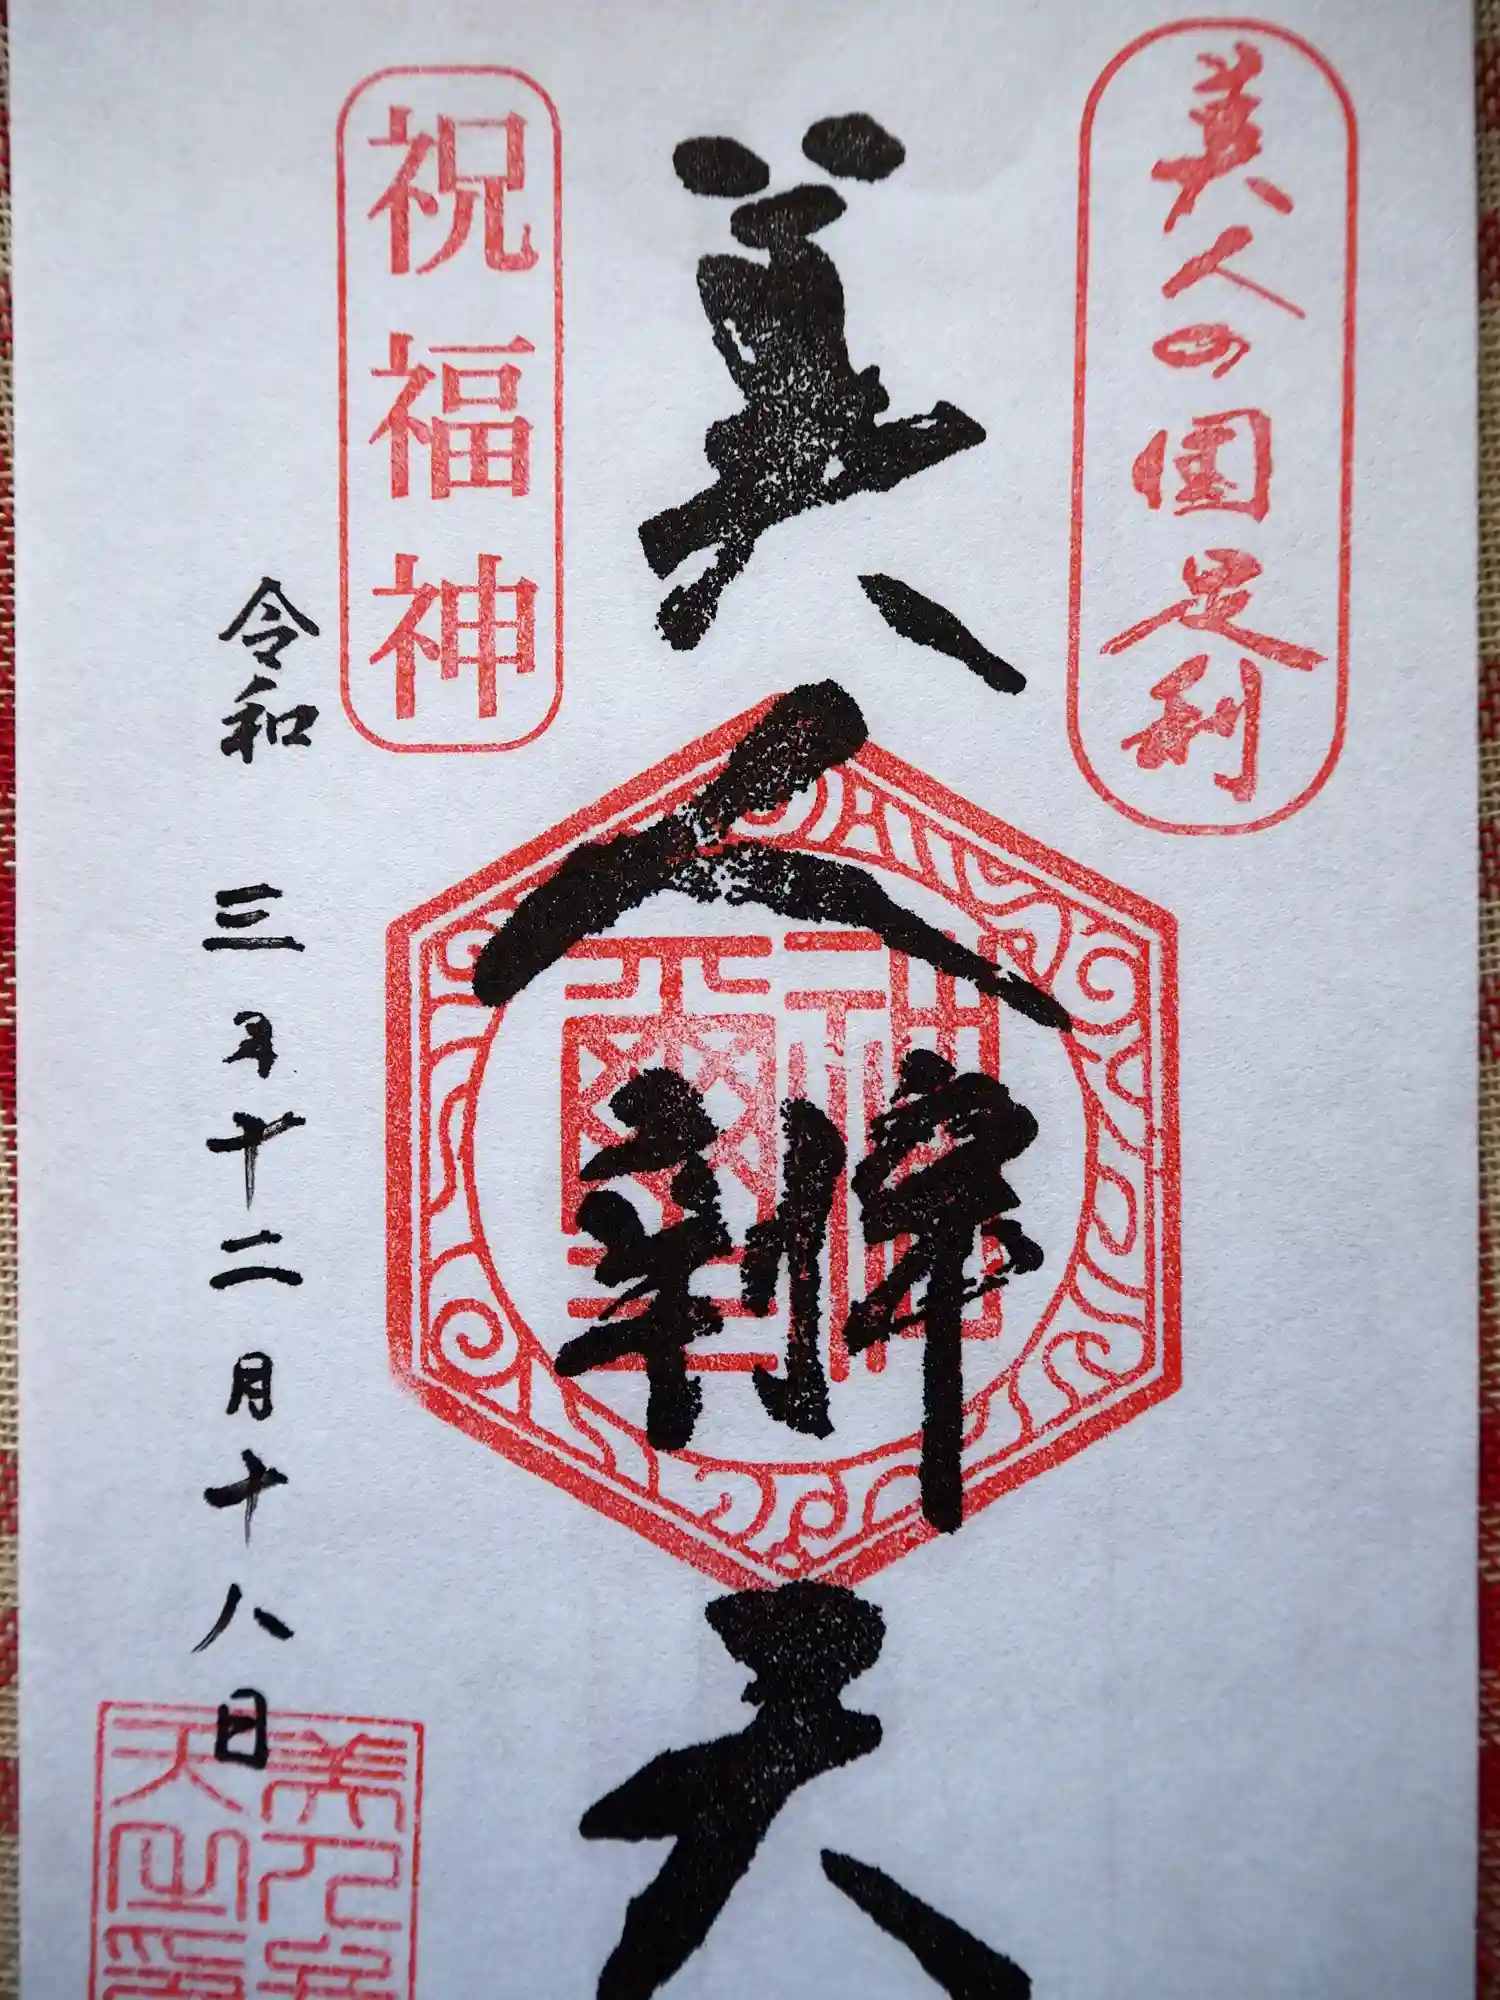 美人の国足利
美人辨天
神璽
祝福神
令和三年十二月十八日